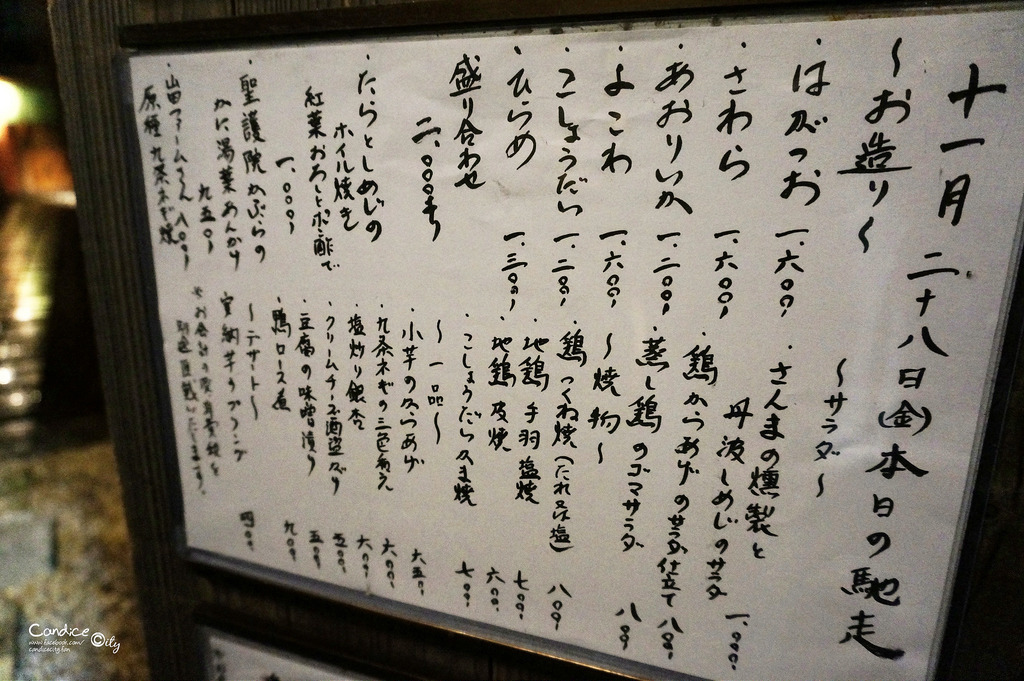 十一月二十八日(金)本日の馳走
〜お造り〜
・はがつお 一、六〇〇、
・さわら 一、六〇〇、
・あおりいか 一、二〇〇、
・よこわ 一、六〇〇、
・こしょうだい 一、二〇〇、
・ひらめ 一、三〇〇、
盛り合わせ
二、〇〇〇より
・たらとしめじの
ホイル焼き
紅葉おろしとポン酢で
一、〇〇〇、
・聖護院かぶらの
かに湯葉あんかけ
九五〇、
・山田ファームさん 八〇〇、
原種九条ネギ焼
〜サラダ〜
・さんまの燻製と
丹波しめじのサラダ 一、〇〇〇、
・鶏からあげのサラダ仕立て 八〇〇、
・蒸し鶏のゴマサラダ 八〇〇、
〜焼物〜
・鶏つくね焼(たれ又は塩) 八〇〇、
・地鶏手羽塩焼 七〇〇、
・地鶏皮焼 六〇〇、
・こしょうだいカマ焼 七〇〇、
〜一品〜
・小芋のからあげ 六五〇、
・九条ネギの三色あえ 六〇〇、
・塩炒り銀杏 六〇〇、
・クリームチーズ酒盗がけ 五〇〇、
・豆腐の味噌漬け 五〇〇、
・鴨ロース煮 九〇〇、
〜デザート〜
・安納芋のプリン 四〇〇、
Candice City
www.facebook.com/
candicecity.fan